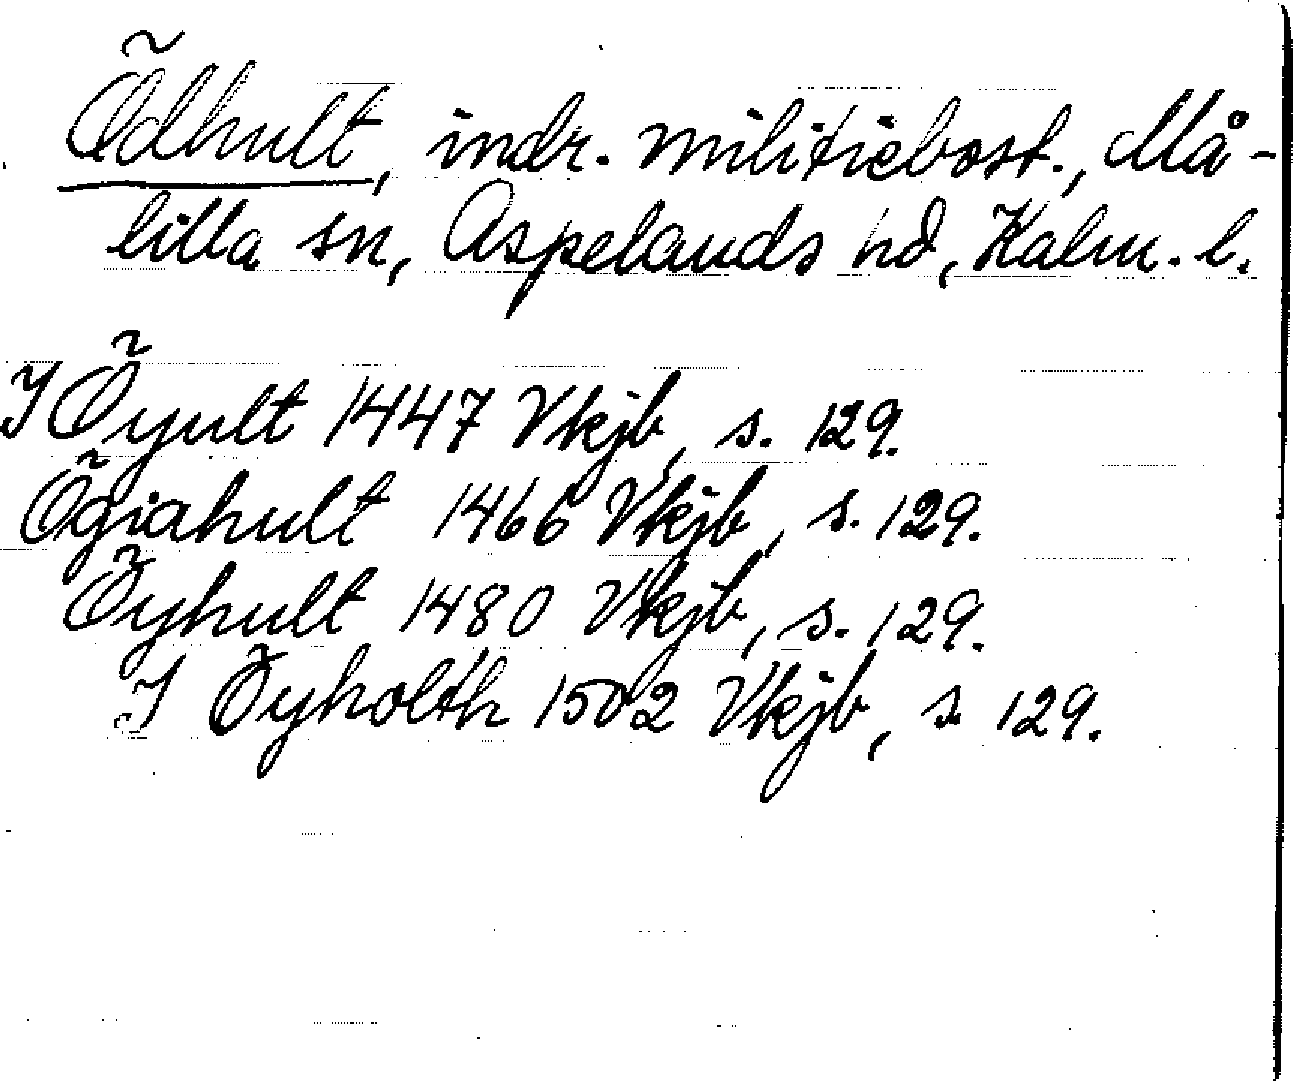 Ödhult, indr. militiebost., Må-
lilla sn, Aspelands hd, Kalm. l.
I Öyult 1447 Vkjb, s. 129.
Ögiahult 1466 Vkjb, s. 129.
Öyhult 1480 Vkjb, s. 129.
I Öyholth 1502 Vkjb, s. 129.